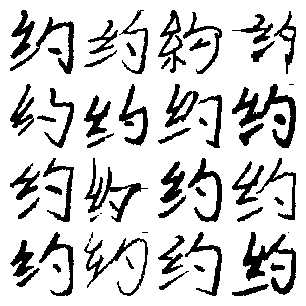 约 约 約
约 约 约 约
约 约 约 约
约 约 约 约